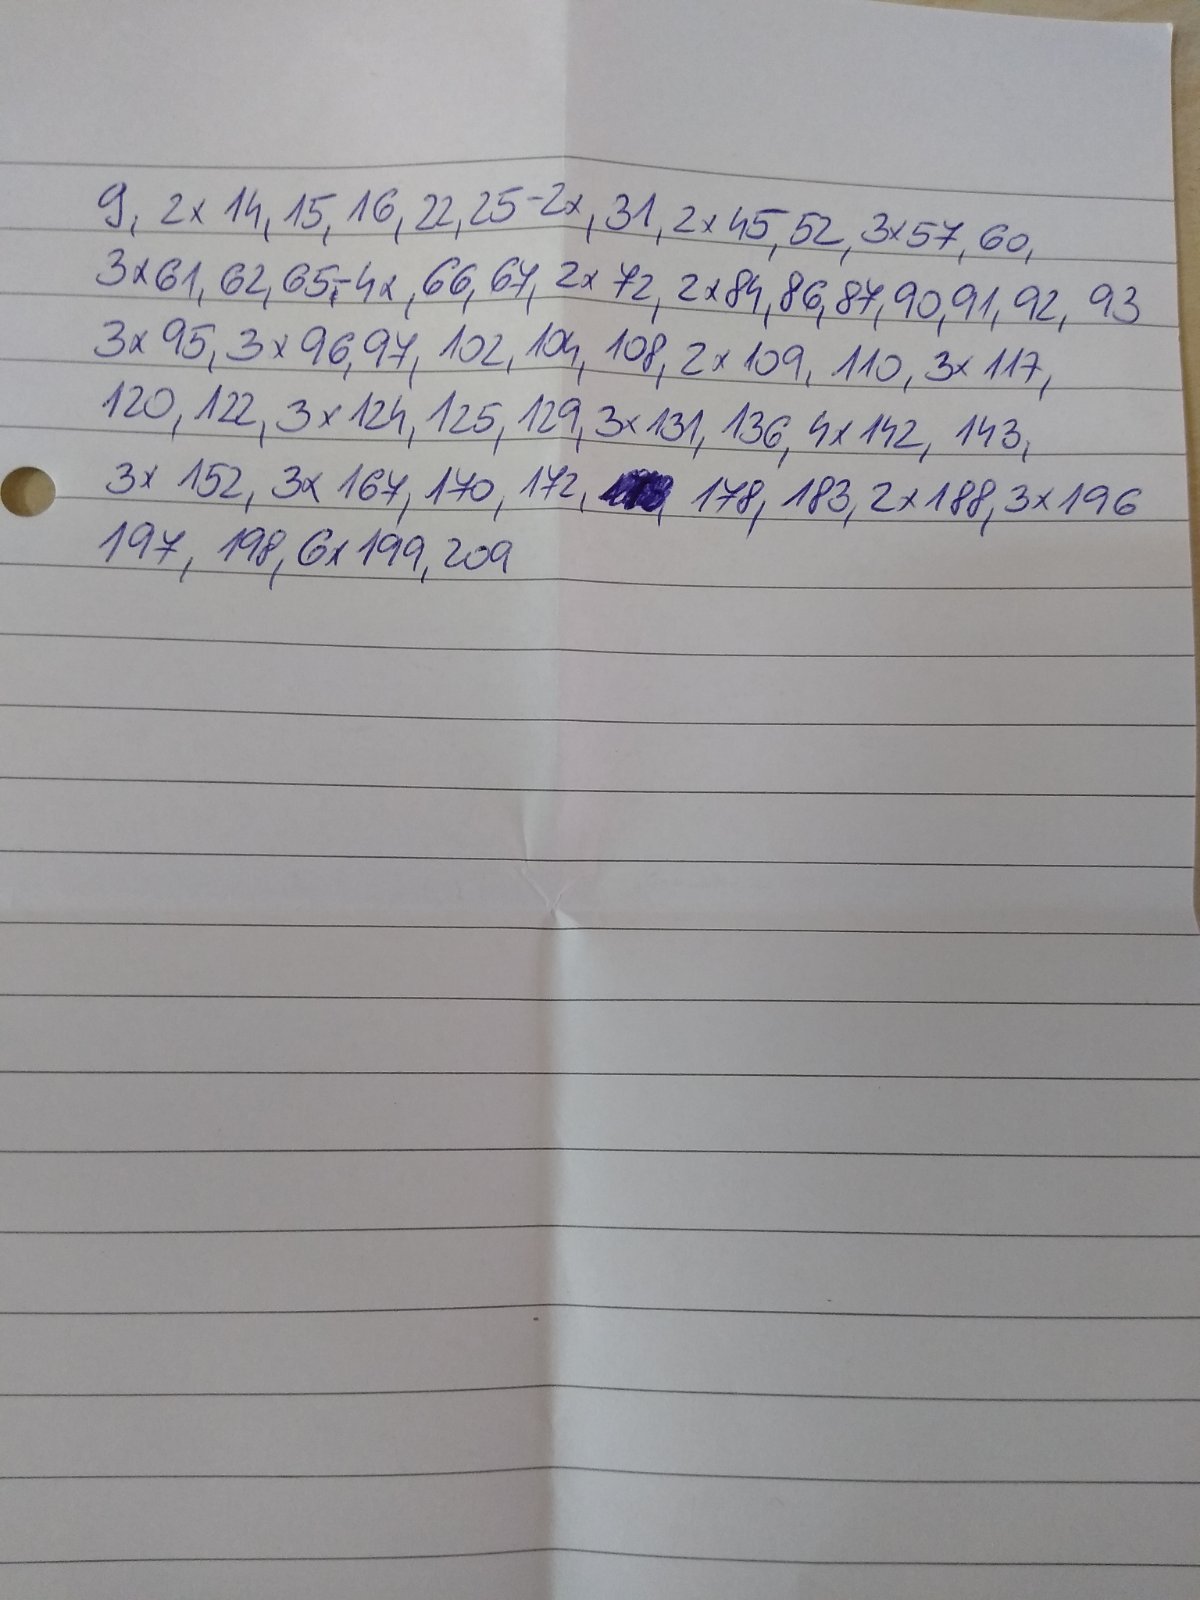 9, 2x 14, 15, 16, 22, 25-2x, 31, 2x45, 52, 3x57, 60,
3x61, 62, 65,-4x, 66, 67, 2x 72, 2x84, 86, 87, 90, 91, 92, 93
3x 95, 3x 96, 97, 102, 104, 108, 2x109, 110, 3x 117,
120, 122, 3x124, 125, 129, 3x131, 136, 4x142, 143,
3x 152, 3x 167, 170, 172, 178, 183, 2x188, 3x196
197, 198, 6x199, 209